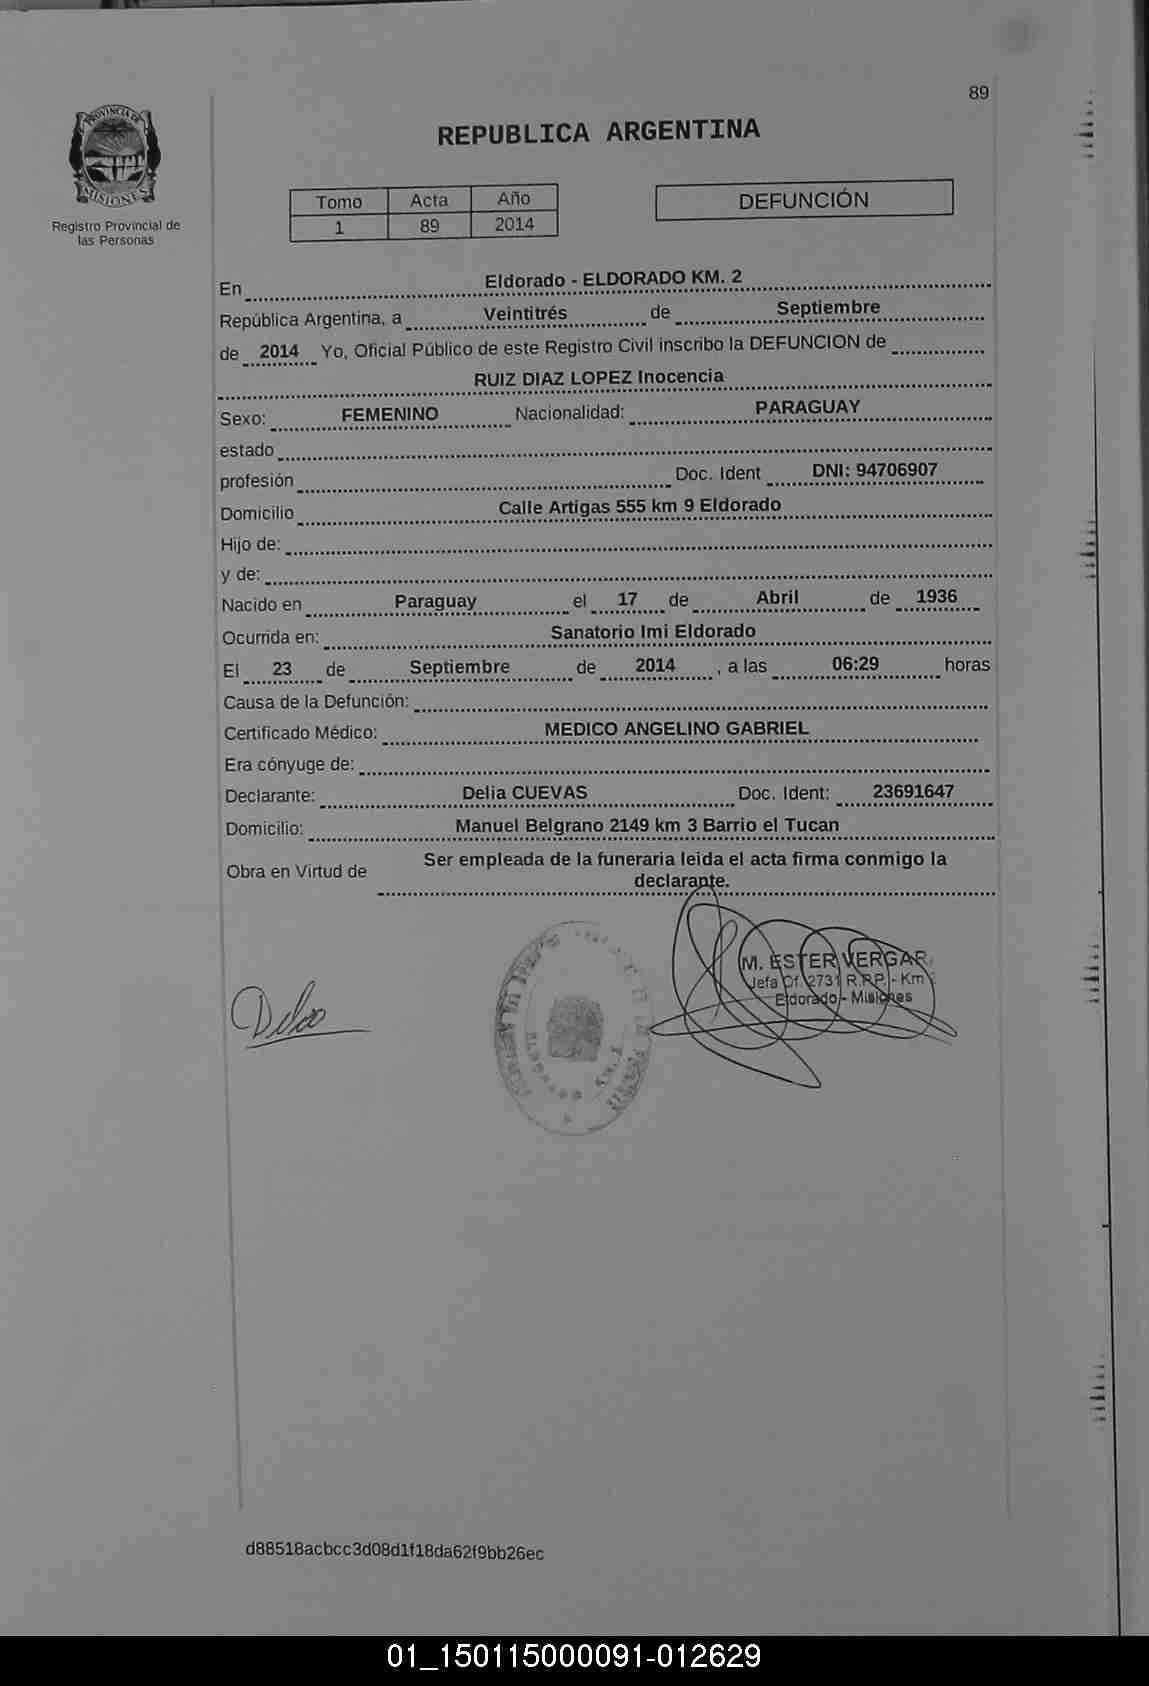 89
PROVINCIA DE
MISIONES
Registro Provincial de
las Personas
REPUBLICA ARGENTINA
Tomo Acta Año
1 89 2014
DEFUNCIÓN
En Eldorado - ELDORADO KM. 2
República Argentina, a Veintitrés de Septiembre
de 2014 Yo, Oficial Público de este Registro Civil inscribo la DEFUNCION de
RUIZ DIAZ LOPEZ Inocencia
Sexo: FEMENINO Nacionalidad: PARAGUAY
estado
profesión Doc. Ident DNI: 94706907
Domicilio Calle Artigas 555 km 9 Eldorado
Hijo de:
y de:
Nacido en Paraguay el 17 de Abril de 1936
Ocurrida en: Sanatorio Imi Eldorado
El 23 de Septiembre de 2014 , a las 06:29 horas
Causa de la Defunción:
Certificado Médico: MEDICO ANGELINO GABRIEL
Era cónyuge de:
Declarante: Delia CUEVAS Doc. Ident: 23691647
Domicilio: Manuel Belgrano 2149 km 3 Barrio el Tucan
Obra en Virtud de Ser empleada de la funeraria leida el acta firma conmigo la
declarante.
M. ESTER VERGAR
Jefa Of. 2731 R.P.P. - Km
Eldorado - Misiones
d88518acbcc3d08d1f18da62f9bb26ec
01_150115000091-012629